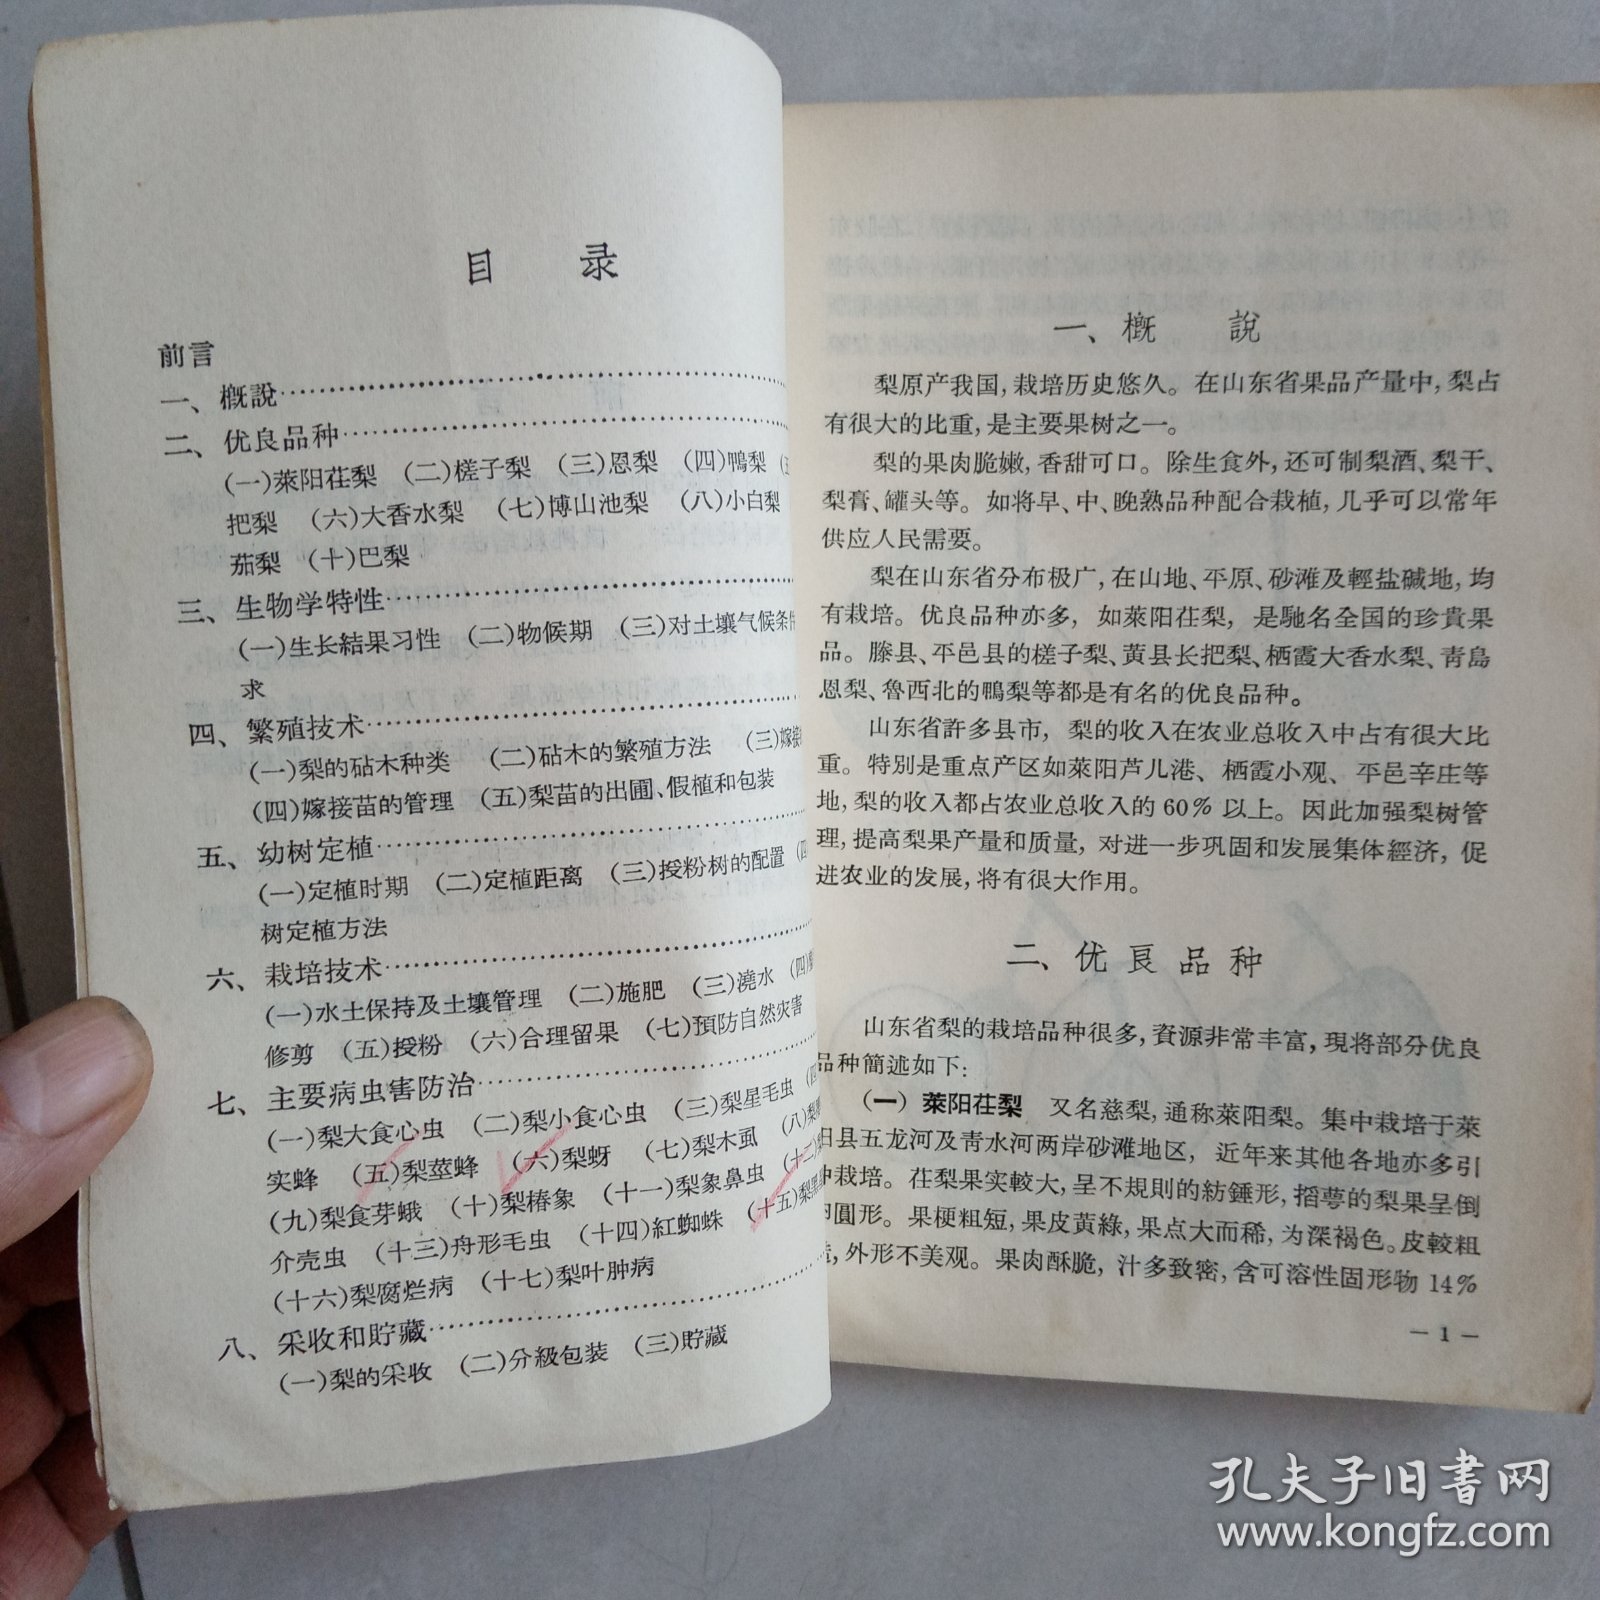 目 录
前言
一、概說
二、优良品种
(一)萊阳茌梨 (二)槎子梨 (三)恩梨 (四)鴨梨
把梨 (六)大香水梨 (七)博山池梨 (八)小白梨
茄梨 (十)巴梨
三、生物学特性
(一)生长結果习性 (二)物候期 (三)对土壤气候条
求
四、繁殖技术
(一)梨的砧木种类 (二)砧木的繁殖方法 (三)嫁接
(四)嫁接苗的管理 (五)梨苗的出圃、假植和包装
五、幼树定植
(一)定植时期 (二)定植距离 (三)授粉树的配置 (四
树定植方法
六、栽培技术
(一)水土保持及土壤管理 (二)施肥 (三)澆水 (四)
修剪 (五)授粉 (六)合理留果 (七)預防自然灾害
七、主要病虫害防治
(一)梨大食心虫 (二)梨小食心虫 (三)梨星毛虫 (四
实蜂 (五)梨莖蜂 (六)梨蚜 (七)梨木虱 (八)梨
(九)梨食芽蛾 (十)梨椿象 (十一)梨象鼻虫 (十二)
介壳虫 (十三)舟形毛虫 (十四)紅蜘蛛 (十五)梨黑
(十六)梨腐烂病 (十七)梨叶肿病
八、采收和貯藏
(一)梨的采收 (二)分級包装 (三)貯藏
一、概 說
梨原产我国,栽培历史悠久。在山东省果品产量中,梨占
有很大的比重,是主要果树之一。
梨的果肉脆嫩,香甜可口。除生食外,还可制梨酒、梨干、
梨膏、罐头等。如将早、中、晚熟品种配合栽植,几乎可以常年
供应人民需要。
梨在山东省分布极广,在山地、平原、砂滩及輕盐碱地,均
有栽培。优良品种亦多,如萊阳茌梨,是馳名全国的珍貴果
品。滕县、平邑县的槎子梨、黄县长把梨、栖霞大香水梨、青島
恩梨、魯西北的鴨梨等都是有名的优良品种。
山东省許多县市,梨的收入在农业总收入中占有很大比
重。特別是重点产区如萊阳芦儿港、栖霞小观、平邑辛庄等
地,梨的收入都占农业总收入的60%以上。因此加强梨树管
理,提高梨果产量和质量,对进一步巩固和发展集体經济,促
进农业的发展,将有很大作用。
二、优良品种
山东省梨的栽培品种很多,資源非常丰富,現将部分优良
品种簡述如下:
(一) 萊阳茌梨 又名慈梨,通称萊阳梨。集中栽培于萊
阳县五龙河及青水河两岸砂滩地区,近年来其他各地亦多引
种栽培。茌梨果实較大,呈不規則的紡錘形,搯萼的梨果呈倒
卵圓形。果梗粗短,果皮黃綠,果点大而稀,为深褐色。皮較粗
,外形不美观。果肉酥脆,汁多致密,含可溶性固形物14%
— 1 —
孔夫子旧书网
www.kongfz.com